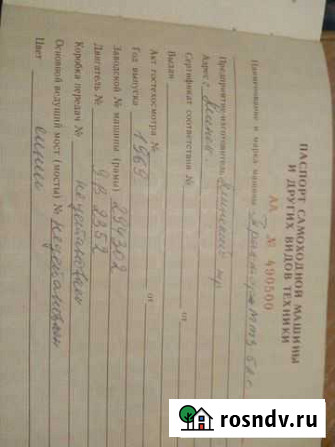 ПАСПОРТ САМОХОДНОЙ МАШИНЫ
И ДРУГИХ ВИДОВ ТЕХНИКИ
АА № 490500
Наименование и марка машины Трактор МТЗ
Предприятие-изготовитель Минский
Адрес г. Минск
Сертификат соответствия № от
Выдан
Акт гостехосмотра № от
Год выпуска 1969
Заводской № машины (рамы) 294302
Двигатель № 2352
Коробка передач № не установлен
Основной ведущий мост (мосты) № не установлен
Цвет синий
rosndv.ru